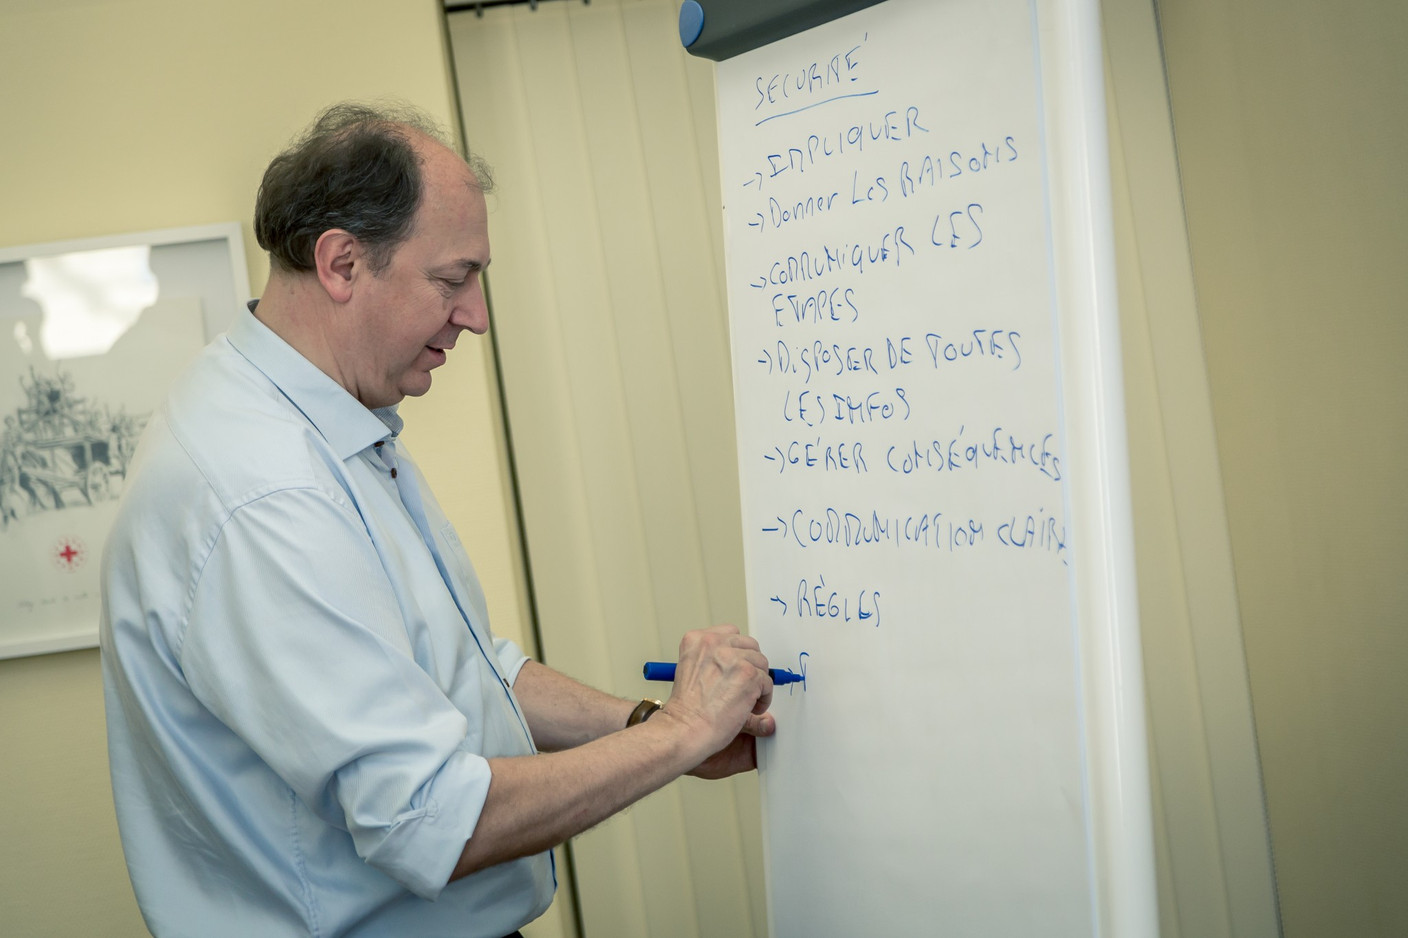 SÉCURITÉ
→ IMPLIQUER
→ Donner Les RAISONS
→ COMMUNIQUER LES
ETAPES
→ DISPOSER DE TOUTES
LES INFOS
→ GÉRER CONSÉQUENCES
→ COMMUNICATION CLAIRE
→ RÈGLES
→